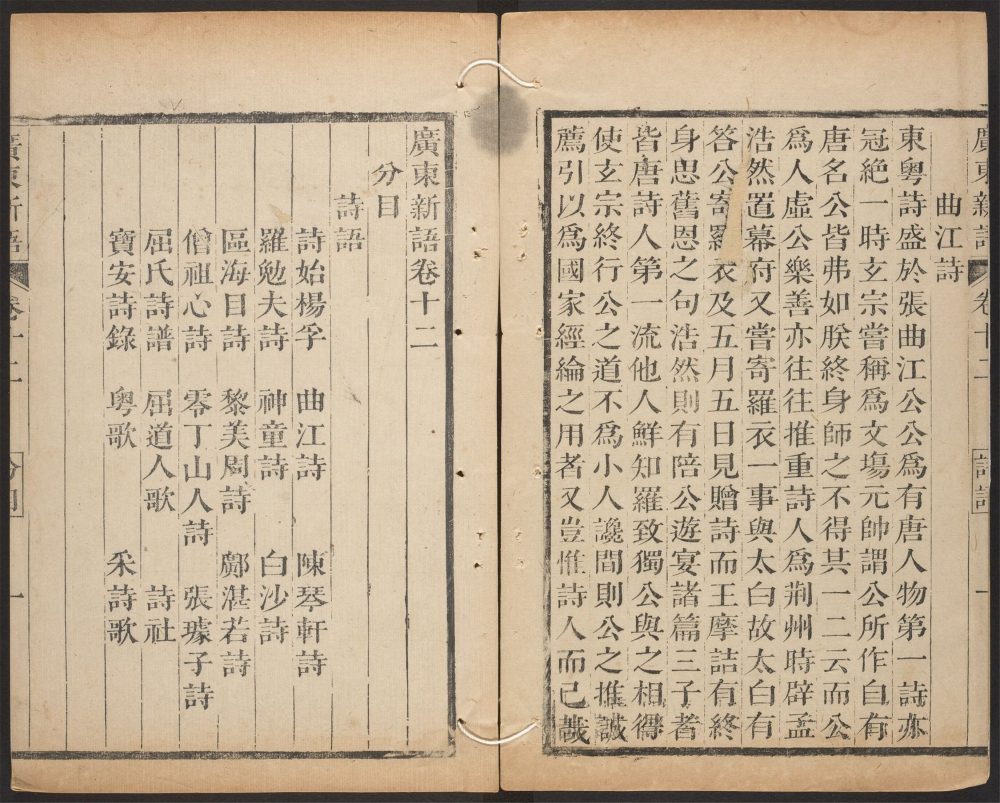 廣東新語 卷十二 詩語 一
曲江詩
東粵詩盛於張曲江公公爲有唐人物第一詩亦
冠絕一時玄宗嘗稱爲文塲元帥謂公所作自有
唐名公皆弗如朕終身師之不得其一二云而公
爲人虛公樂善亦往往推重詩人爲荆州時辟孟
浩然置幕府又嘗寄羅衣一事與太白故太白有
答公寄羅衣及五月五日見贈詩而王摩詰有終
身思舊恩之句浩然則有陪公遊宴諸篇三子者
皆唐詩人第一流他人鮮知羅致獨公與之相得
使玄宗終行公之道不爲小人讒間則公之推誠
薦引以爲國家經綸之用者又豈惟詩人而已哉
廣東新語卷十二
分目
詩語
詩始楊孚 曲江詩 陳琴軒詩
羅勉夫詩 神童詩 白沙詩
區海目詩 黎美周詩 鄺湛若詩
僧祖心詩 零丁山人詩 張璩子詩
屈氏詩譜 屈道人歌 詩社
寶安詩錄 粵歌 采詩歌
廣東新語 卷十二 分目 一